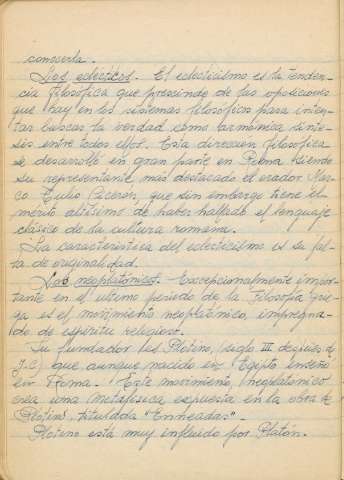 conocerla.
Los eclécticos. El eclecticismo es la tenden-
cia filosófica que prescinde de las oposiciones
que hay en los sistemas filosóficos para inten-
tar buscar la verdad como armónica sínte-
sis entre todos ellos. Esta dirección filosófica
se desarrolló en gran parte en Roma siendo
su representante más destacado el orador Mar-
co Tulio Cicerón, que sin embargo tiene el
mérito altísimo de haber hallado el lenguaje
clásico de la cultura romana.
La característica del eclecticismo es su fal-
ta de originalidad.
Los neoplatónicos.- Excepcionalmente impor-
tante en el último periodo de la Filosofía Grie-
ga es el movimiento neoplatónico, impregna-
do de espíritu religioso.
Su fundador es Plotino, (siglo III después de
J.C) que aunque nacido en Egipto enseñó
en Roma. Este movimiento neoplatónico
crea una metafísica expuesta en la obra de
Plotino, titulada "Enneadas".
Plotino está muy influido por Platón.